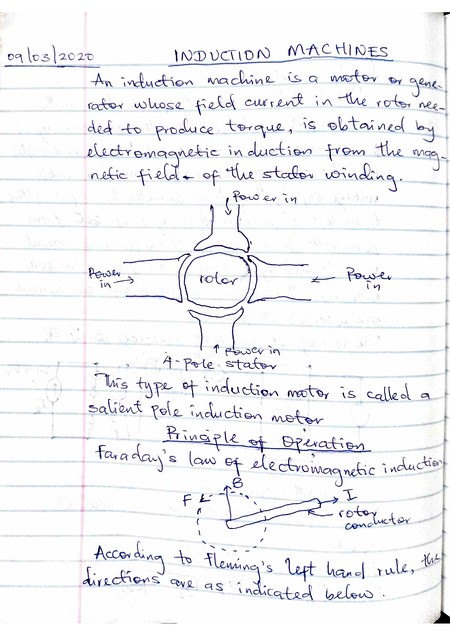 09/03/2020 INDUCTION MACHINES
An induction machine is a motor or gene-
rator whose field current in the rotor nee-
ded to produce torque, is obtained by
electromagnetic induction from the mag-
netic field of the stator winding.
Power in
Power in
rotor
Power in
Power in
4-pole stator
This type of induction motor is called a
salient pole induction motor
Principle of Operation
Faraday's law of electromagnetic induction
B
F
I
rotor
conductor
According to Fleming's left hand rule, the
directions are as indicated below.